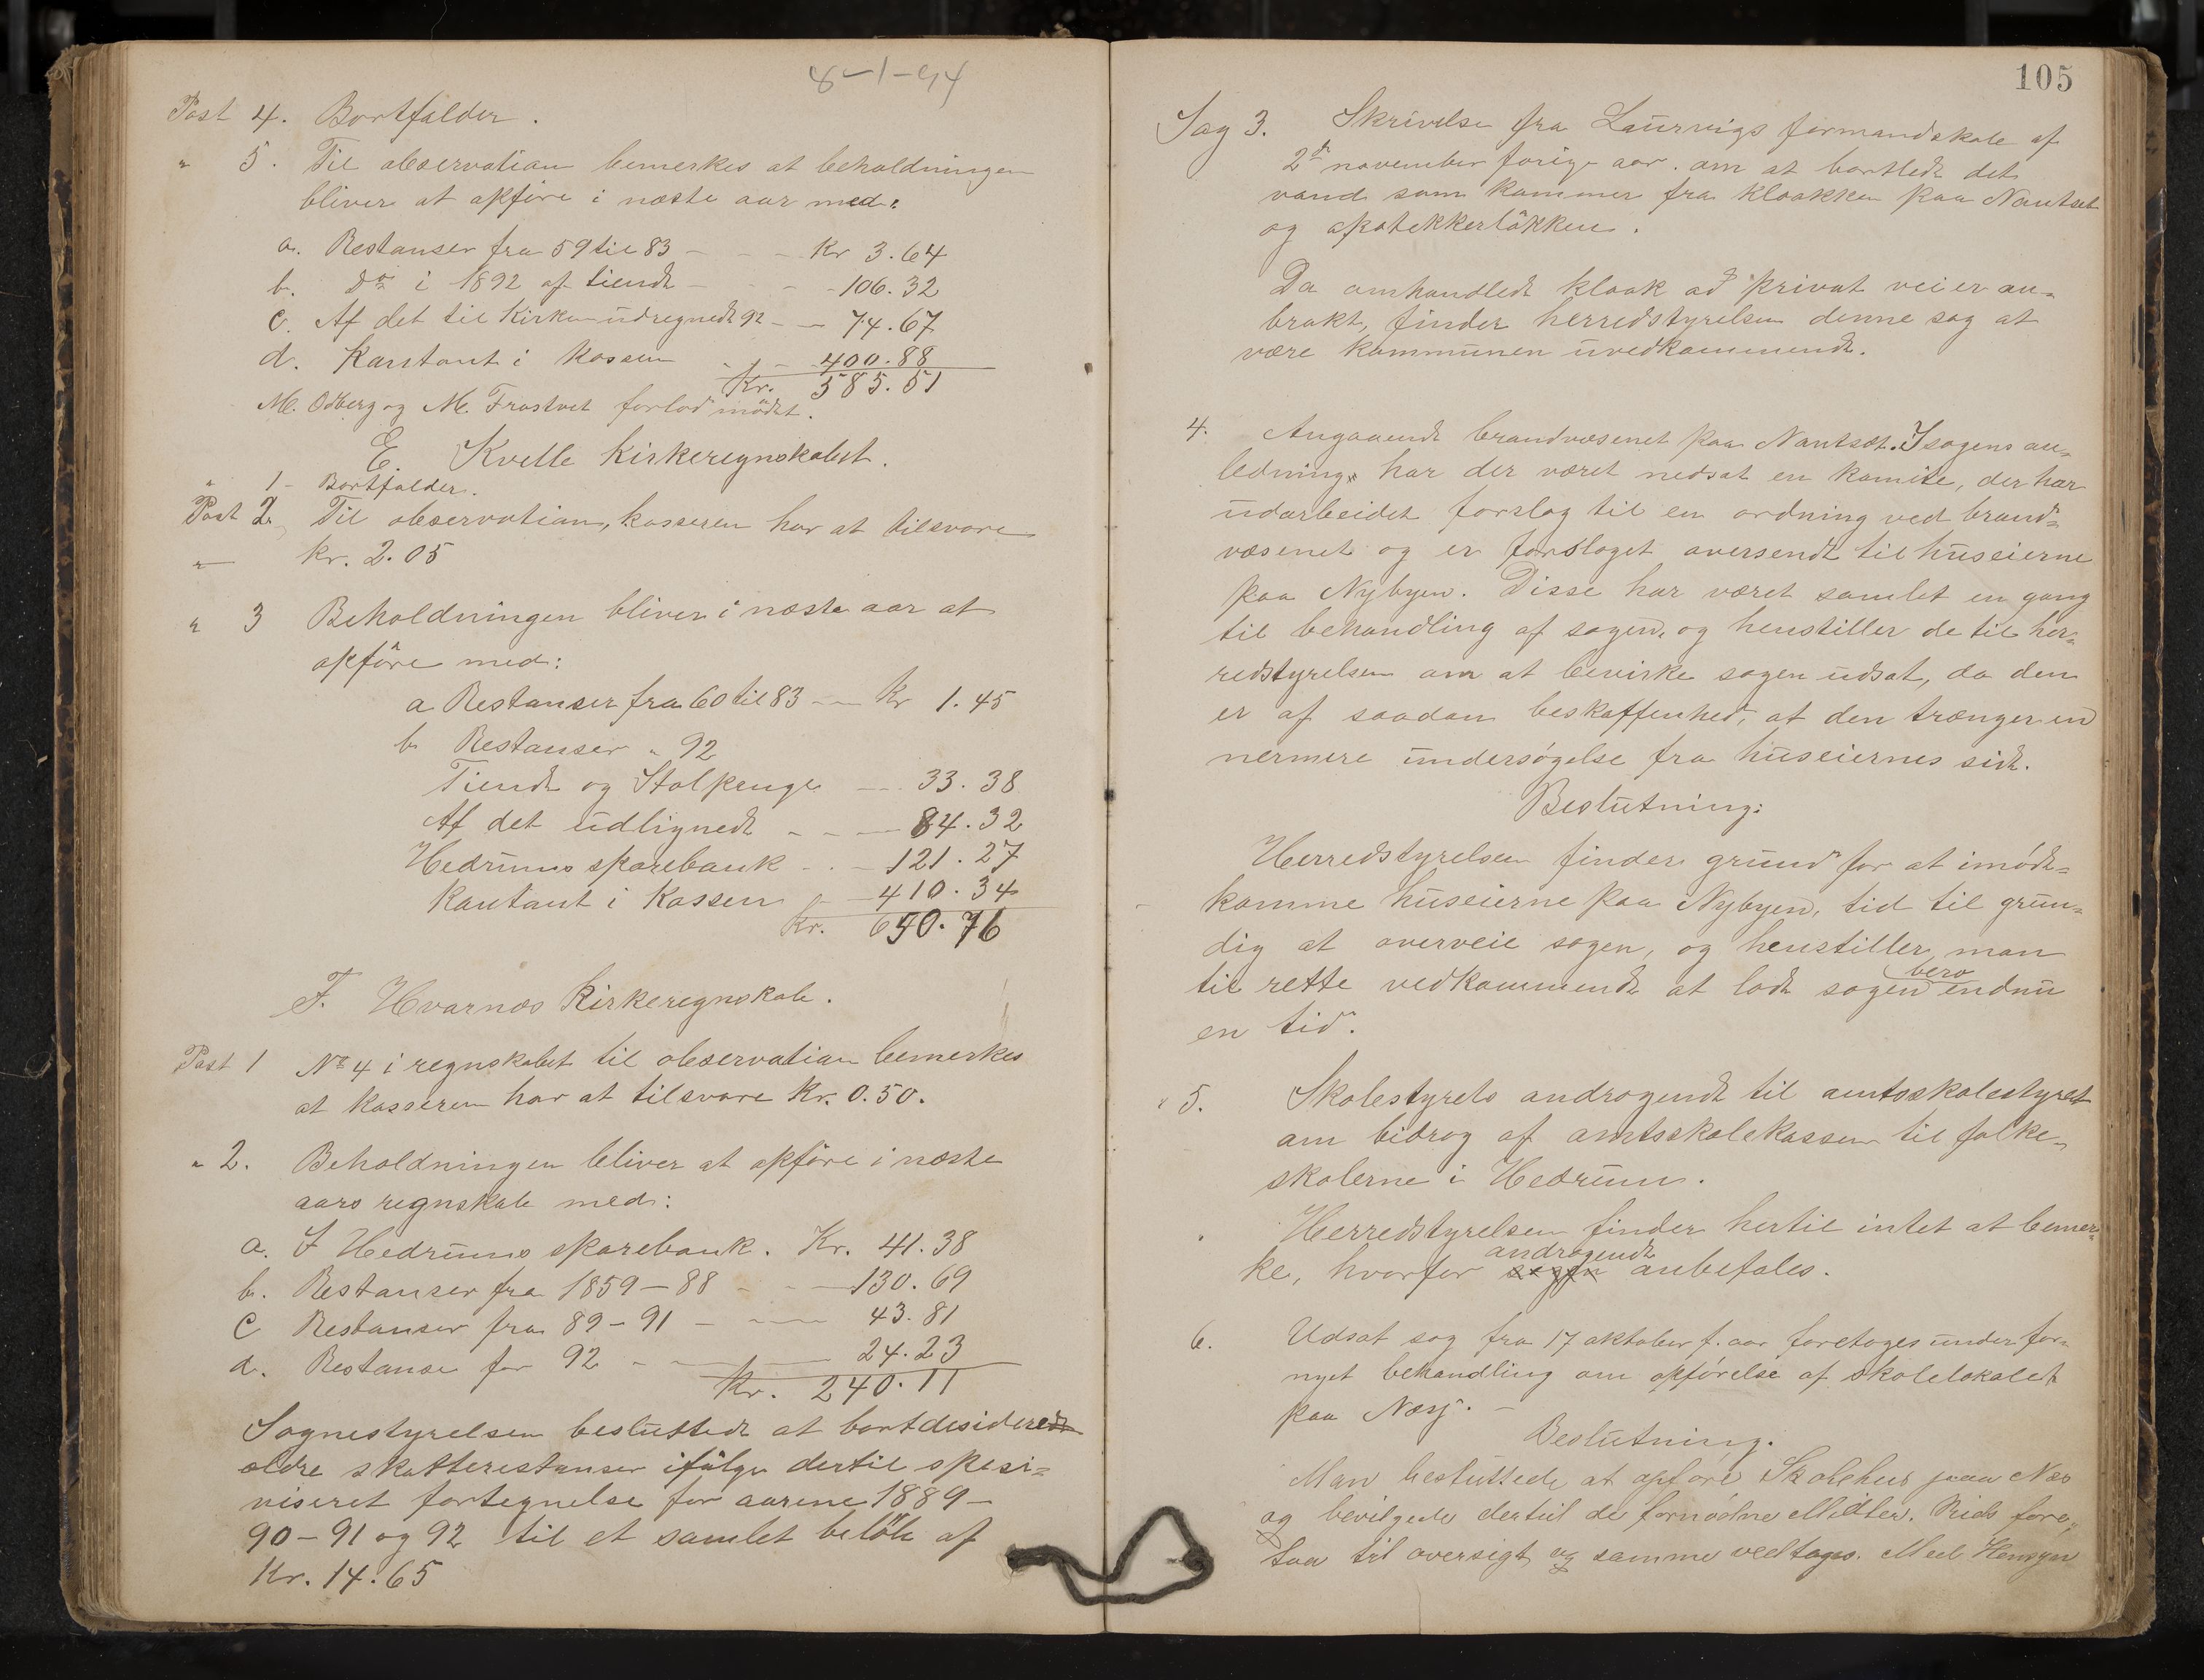 8-1-94
Post 4. Bortfalder.
" 5. Til observation bemerkes at beholdningen
bliver at opføre i næste aar med:
a. Restanser fra 59 til 83 - - - Kr 3.64
b. Do i 1892 af tiende - - - 106.32
c. Af det til Kirken udregnede 92 - - 74.67
d. Kontant i kassen - - 400.88
Kr. 585.51
M. Odberg og M. Trostvet forlod mödet.
E. Kvelle kirkeregnskabet.
" 1 - Bortfalder.
Post 2. Til observation, kasseren har at tilsvare
" kr. 2.05
" 3 Beholdningen bliver i næste aar at
opføre med:
a Restanser fra 60 til 83 - - Kr 1.45
b Restanser " 92
Tiende og Stolpenge - - 33.38
Af det udlignede - - - 84.32
Hedrums sparebank - - 121.27
Kontant i Kassen - - 410.34
Kr. 650.76
F. Hvarnæs Kirkeregnskab.
Post 1 No 4 i regnskabet til observation bemerkes
at kasseren har at tilsvare Kr. 0.50.
" 2. Beholdningen bliver at opføre i næste
aars regnskab med:
a. I Hedrums sparebank. Kr. 41.38
b. Restanser fra 1859-88 - - - 130.69
c Restanser fra 89-91 - - - 43.81
d. Restanse for 92 - - - 24.23
Kr. 240.11
Sognestyrelsen besluttede at bortdesiderede
ældre skatterestanser ifølge dertil spesi=
viseret fortegnelse for aarene 1889-
90-91 og 92 til et samlet beløb af
Kr. 14.65
105
Sag 3. Skrivelse fra Laurvigs formandskab af
2de november forige aar. om at bortlede det
vand som kommer fra kloakken paa Nantset
og apotekkerløkken.
Da omhandlede kloak ad privat vei er an=
brakt, finder herredstyrelsen denne sag at
være kommunen uvedkommende.
4. Angaaende brandvæsenet paa Nantset. I sagens an=
ledning har der været nedsat en komite, der har
udarbeidet forslag til en ordning ved brand=
væsenet og er forslaget oversendt til huseierne
paa Nybyen. Disse har været samlet en gang
til behandling af sagen, og henstiller de til her=
redstyrelsen om at bevirke sagen udsat, da den
er af saadan beskaffenhed, at den trænger en
nermere undersøgelse fra huseiernes side.
Beslutning:
Herredstyrelsen finder grund for at imøde=
komme huseierne paa Nybyen, tid til grun=
dig at overveie sagen, og henstiller man
til rette vedkommende at lade sagen bero endnu
en tid.
" 5. Skolestyrets andragende til amtsskolestyret
om bidrag af amtsskolekassen til folke=
skolerne i Hedrum.
Herredstyrelsen finder hertil intet at bemer=
ke, hvorfor sagen andragende anbefales.
6. Udsat sag fra 17 oktober f. aar foretages under for=
nyet behandling om opførelse af skolelokalet
paa Næsj. -
Beslutning.
Man besluttede at opføre Skolehus paa Næs
og bevilgede dertil de fornødne Midler. Rids fore=
laa til oversigt og samme vedtages. Med Hensyn